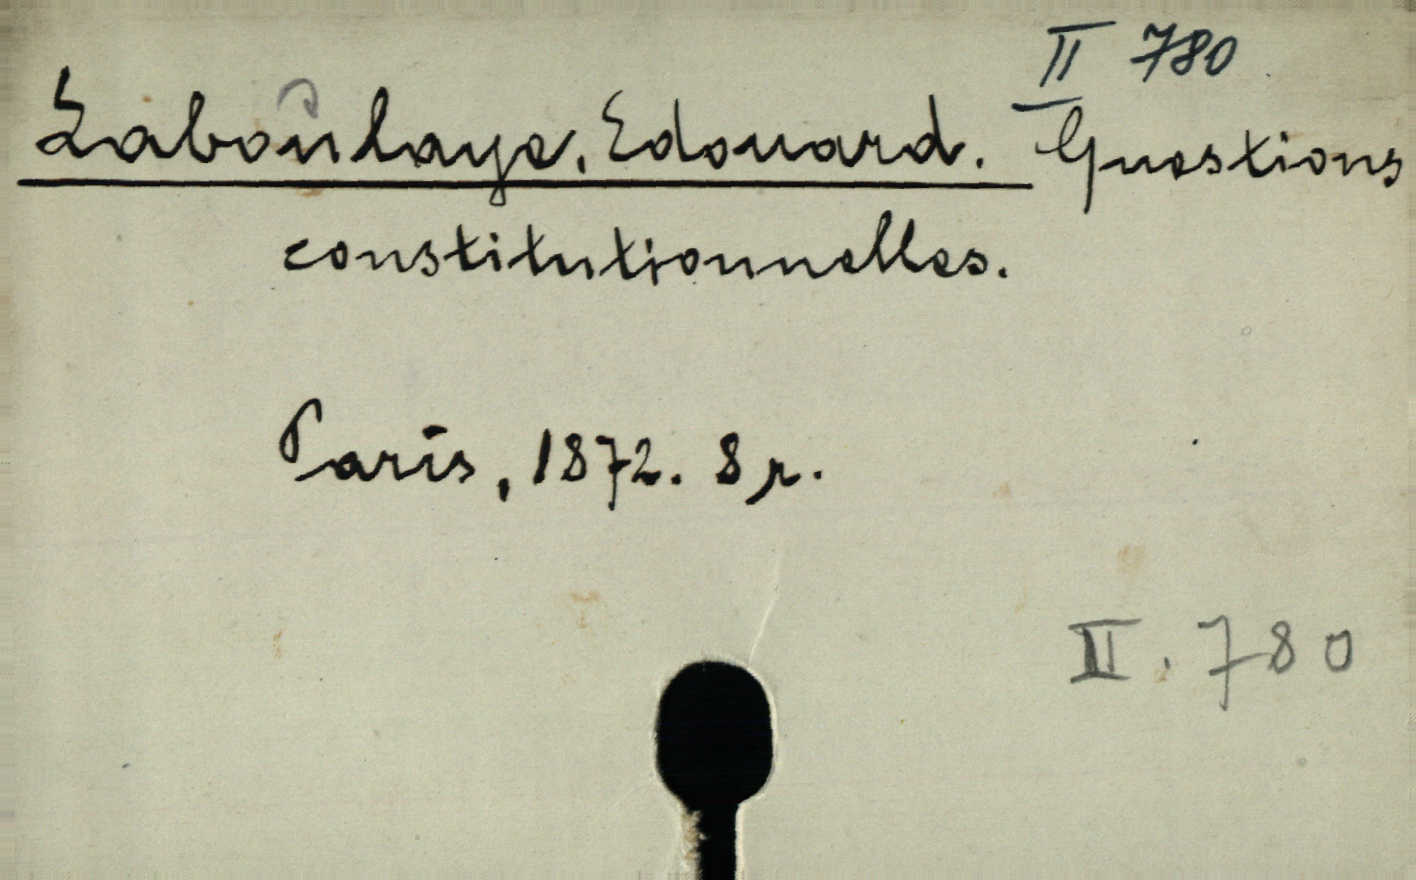 II 780
Laboulaye, Edouard. Questions
constitutionnelles.
Paris, 1872. 8r.
II. 780